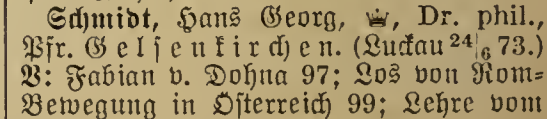 Schmidt, Hans Georg, ♛, Dr. phil.,
Pfr. Gelsenkirchen. (Luckau 24|6 73.)
V: Fabian v. Dohna 97; Los von Rom=
Bewegung in Österreich 99; Lehre vom